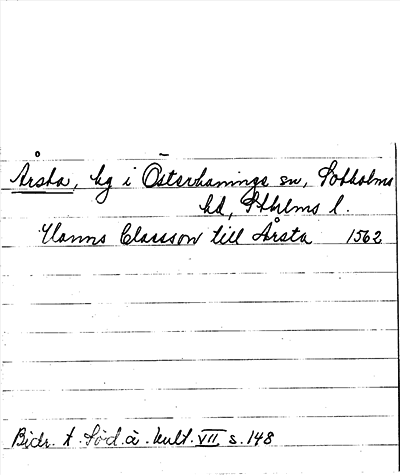 Årsta, hg i Österhaninge sn, Sotholms
hd, Sthlms l.
Hanns Claesson till Årsta 1562
Bidr. t. Söd. ä. kult. VII s. 148